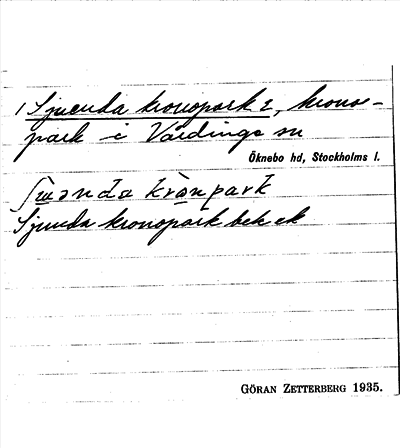 1 Sjuenda kronopark 2, krono-
park i Vårdinge sn
Öknebo hd, Stockholms l.
ʃɯənda krånpark
Sjunda kronopark bek ek
GÖRAN ZETTERBERG 1935.